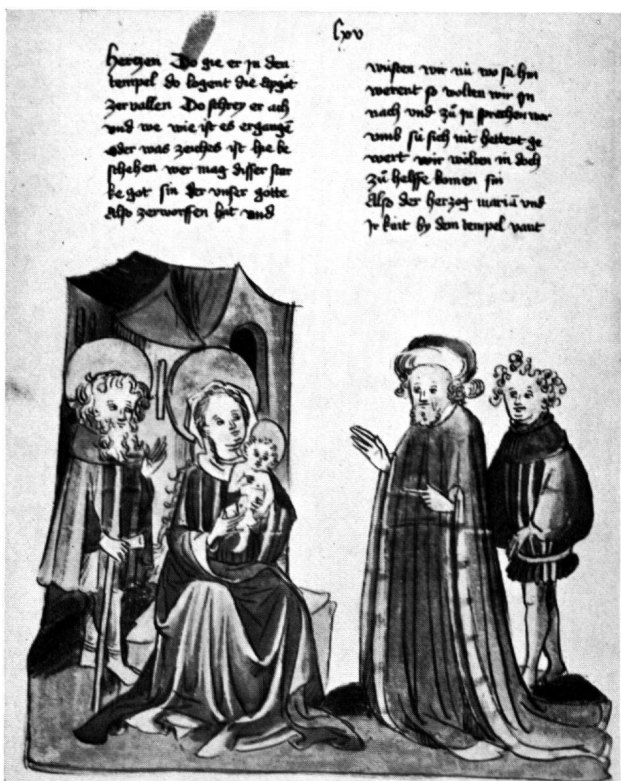 lxv
hertzen Do gie er jn den
tempel do lagent die apgöt
zervallen Do schrey er ach
und we wie ist es ergangē
oder was zeiches ist hie be
schehen wer mag disser star
ke got sin der unser gotte
Also zerworffen hat und
wüsten wir nü wo sü hin
werent so wolten wir jn
nach und zü jn sprechen war
umb sü sich nit hettent ge
wert wir wölten in doch
zü helffe komen sin
Als der herzog mariā und
jr kint by dem tempel vant